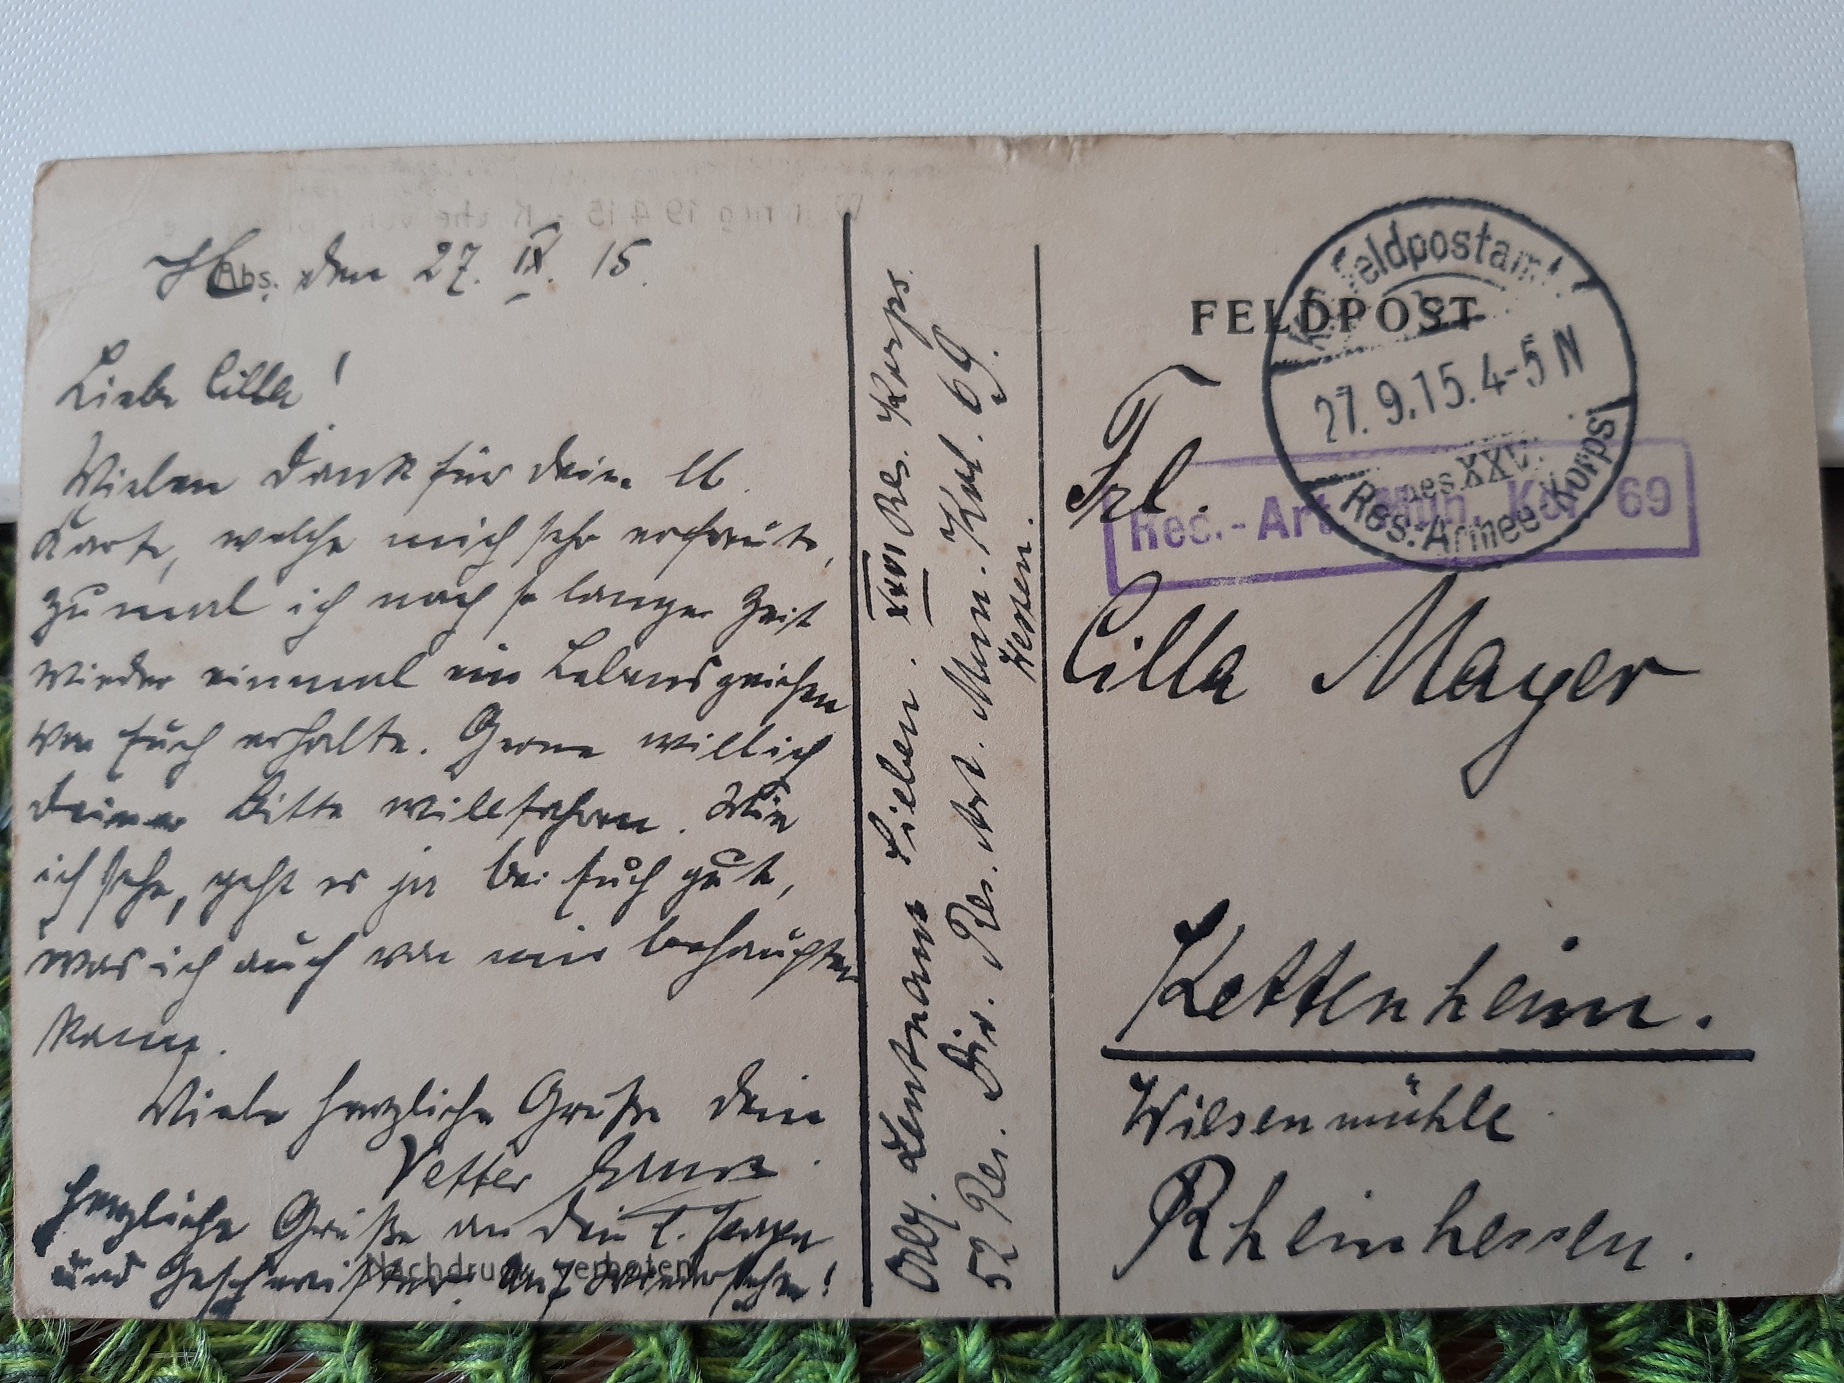 Abs. den 27. IX. 15.
Liebe Cilla!
Vielen Dank für Deine lb.
Karte, welche mich sehr erfreute,
zumal ich nach so langer Zeit
wieder einmal ein Lebenszeichen
von Euch erhalte. Gerne will ich
Deiner Bitte willfahren. Wie
ich sehe, geht es ja bei Euch gut,
was ich auch von mir behaupten
kann.
Viele herzliche Grüße Dein
Vetter
Herzliche Grüße an Dein l. Papa
und Geschwister. Auf Wiedersehen!
Nachdruck verboten
Abs. Leutnant Sieben. XXVI Res. Korps.
52 Res. Div. Res. Art. Mun. Kol. 69.
Hessen.
FELDPOST
Feldpostamt
27.9.15. 4-5 N
des XXVI.
Res.-Armee-Korps.
Res.-Art. Mun. Kol. 69
Frl.
Cilla Mayer
Kettenheim.
Wiesenmühle
Rheinhessen.